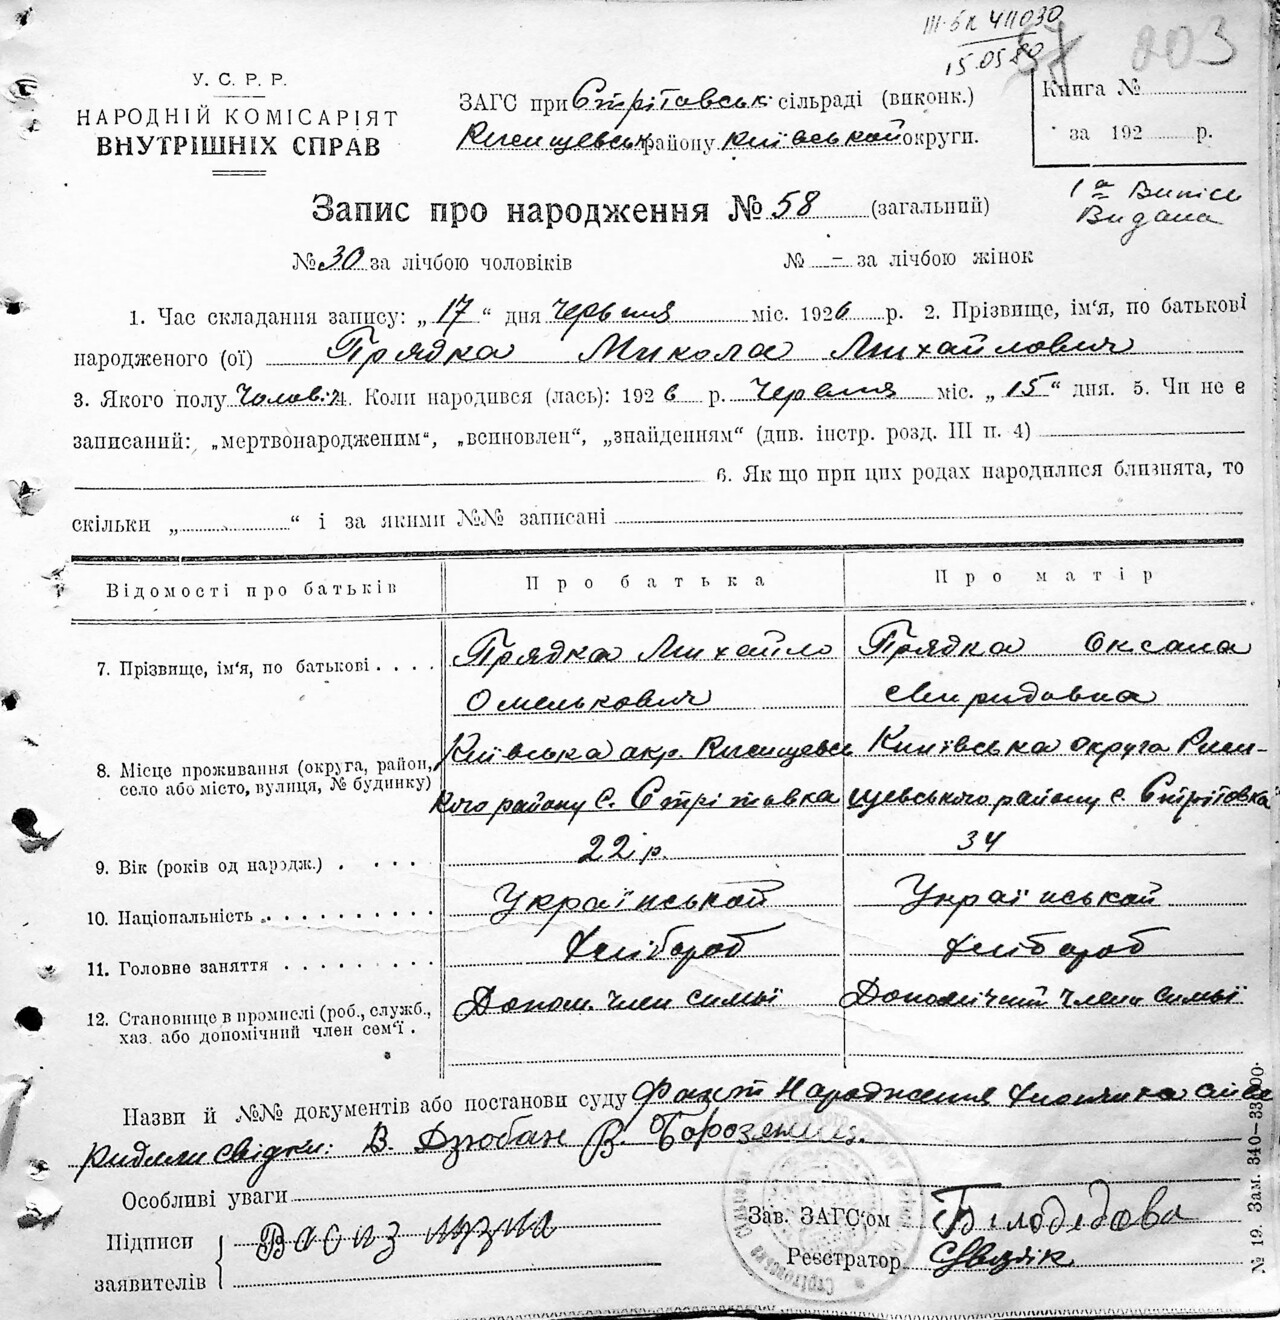 III-БК 411030
15.05.80
57 003
У. С. Р. Р.
НАРОДНІЙ КОМІСАРІЯТ
ВНУТРІШНІХ СПРАВ
ЗАГС при Стрітовськ. сільраді (виконк.)
Ржищевськ району Київської округи.
Книга №
за 192 р.
Запис про народження № 58 (загальний)
1а Випись
Видана
№ 30 за лічбою чоловіків № – за лічбою жінок
1. Час складання запису: „ 17 “ дня Червня міс. 1926 р. 2. Прізвище, ім‘я, по батькові
народженого (ої) Прядка Микола Михайлович
3. Якого полу Чолов. 4. Коли народився (лась): 1926 р. Червня міс. „ 15 “ дня. 5. Чи не є
записаний: „мертвонародженим“, „всиновлен“, „знайденням“ (див. інстр. розд. III п. 4)
6. Як що при цих родах народилися близнята, то
скільки „ “ і за якими №№ записані
Відомості про батьків Про батька Про матір
7. Прізвище, ім‘я, по батькові Прядка Михайло Прядка Оксана
Омелькович Свиридовна
8. Місце проживання (округа, район, Київська окр. Ржищевсь Київська округа Ржи-
село або місто, вулиця, № будинку) кого району с. Стрітовка щевського району с. Стрітовка
9. Вік (років од народж.) 22 р. 34
10. Національність Української Української
11. Головне заняття Хлібороб Хлібороб
12. Становище в промислі (роб., служб., Допом. член симьї Допомічний член симьї
хаз. або допомічний член сем‘ї
Назви й №№ документів або постанови суду Факт народження хлопчика
свідки: В. Дзюбан В.
Особливі уваги
Підписи
заявителів
Зав. ЗАГС‘ом Білодідова
Реєстратор
№ 19. Зам. 340—33000.